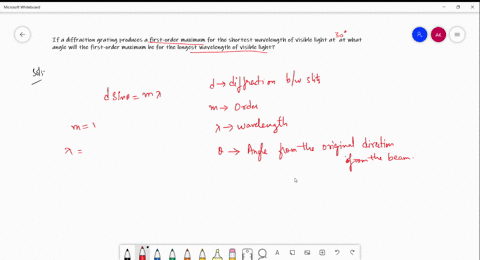 Microsoft Whiteboard
If a diffraction grating produces a first-order maximum for the shortest wavelength of visible light at 30° at what
angle will the first-order maximum be for the longest wavelength of visible light?
AK
Sol:
d sinθ = m λ
m = 1
λ =
d → diffraction b/w slits
m → Order
λ → wavelength
θ → Angle from the original direction
from the beam.